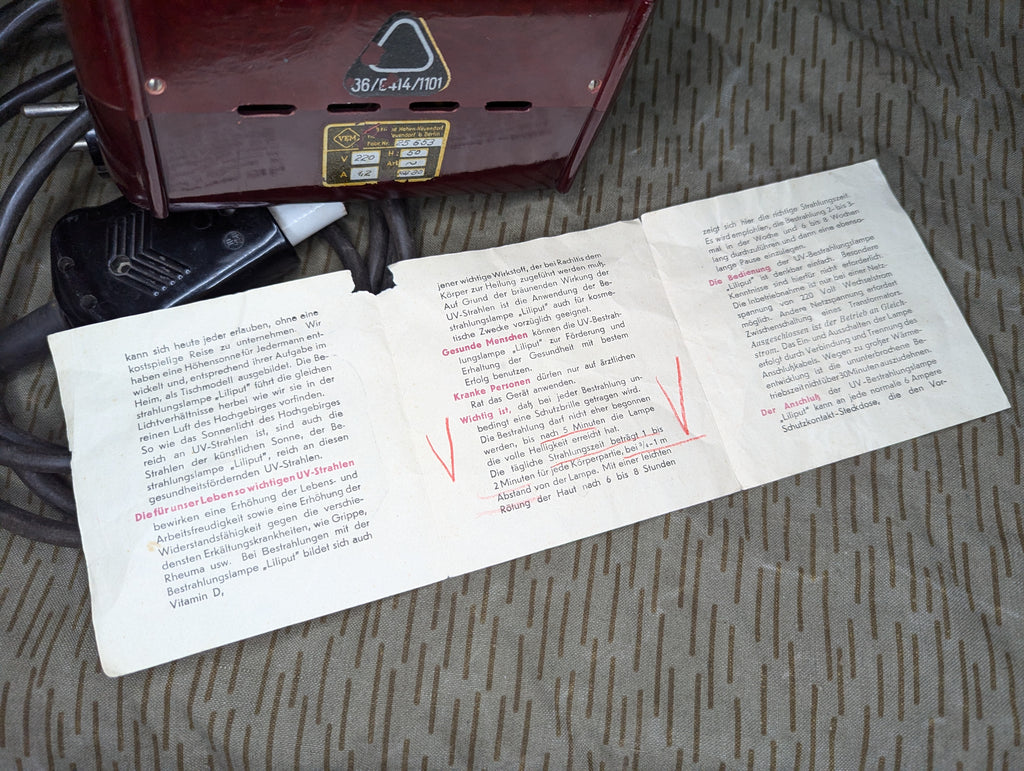 36/E 14/1101
VEM
Hohen-Neuendorf
b. Berlin
Fabr. Nr. 25 653
V 220 H: 50
A 4,2
kann sich heute jeder erlauben, ohne eine
kostspielige Reise zu unternehmen. Wir
haben eine Höhensonne für Jedermann ent-
wickelt und, entsprechend ihrer Aufgabe im
Heim, als Tischmodell ausgebildet. Die Be-
strahlungslampe „Liliput" führt die gleichen
Lichtverhältnisse herbei wie wir sie in der
reinen Luft des Hochgebirges vorfinden.
So wie das Sonnenlicht des Hochgebirges
reich an UV-Strahlen ist, sind auch die
Strahlen der künstlichen Sonne, der Be-
strahlungslampe „Liliput", reich an diesen
gesundheitsfördernden UV-Strahlen.
Die für unser Leben so wichtigen UV-Strahlen
bewirken eine Erhöhung der Lebens- und
Arbeitsfreudigkeit sowie eine Erhöhung der
Widerstandsfähigkeit gegen die verschie-
densten Erkältungskrankheiten, wie Grippe,
Rheuma usw. Bei Bestrahlungen mit der
Bestrahlungslampe „Liliput" bildet sich auch
Vitamin D,
jener wichtige Wirkstoff, der bei Rachitis dem
Körper zur Heilung zugeführt werden muß.
Auf Grund der bräunenden Wirkung der
UV-Strahlen ist die Anwendung der Be-
strahlungslampe „Liliput" auch für kosme-
tische Zwecke vorzüglich geeignet.
Gesunde Menschen können die UV-Bestrah-
lungslampe „Liliput" zur Förderung und
Erhaltung der Gesundheit mit bestem
Erfolg benutzen.
Kranke Personen dürfen nur auf ärztlichen
Rat das Gerät anwenden.
Wichtig ist, daß bei jeder Bestrahlung un-
bedingt eine Schutzbrille getragen wird.
Die Bestrahlung darf nicht eher begonnen
werden, bis nach 5 Minuten die Lampe
die volle Helligkeit erreicht hat.
Die tägliche Strahlungszeit beträgt 1 bis
2 Minuten für jede Körperpartie, bei ¾-1 m
Abstand von der Lampe. Mit einer leichten
Rötung der Haut nach 6 bis 8 Stunden
zeigt sich hier die richtige Strahlungszeit.
Es wird empfohlen, die Bestrahlung 2- bis 3-
mal in der Woche und 6 bis 8 Wochen
lang durchzuführen und dann eine ebenso-
lange Pause einzulegen.
Die Bedienung der UV-Bestrahlungslampe
„Liliput" ist denkbar einfach. Besondere
Kenntnisse sind hierfür nicht erforderlich.
Die Inbetriebnahme ist nur bei einer Netz-
spannung von 220 Volt Wechselstrom
möglich. Andere Netzspannung erfordert
Zwischenschaltung eines Transformators.
Ausgeschlossen ist der Betrieb an Gleich-
strom. Das Ein- und Ausschalten der Lampe
erfolgt durch Verbindung und Trennung des
Anschlußkabels. Wegen zu großer Wärme-
entwicklung ist die ununterbrochene Be-
triebszeit nicht über 30 Minuten auszudehnen.
Der Anschluß der UV-Bestrahlungslampe
„Liliput" kann an jede normale 6 Ampere
Schutzkontakt-Steckdose, die den Vor-